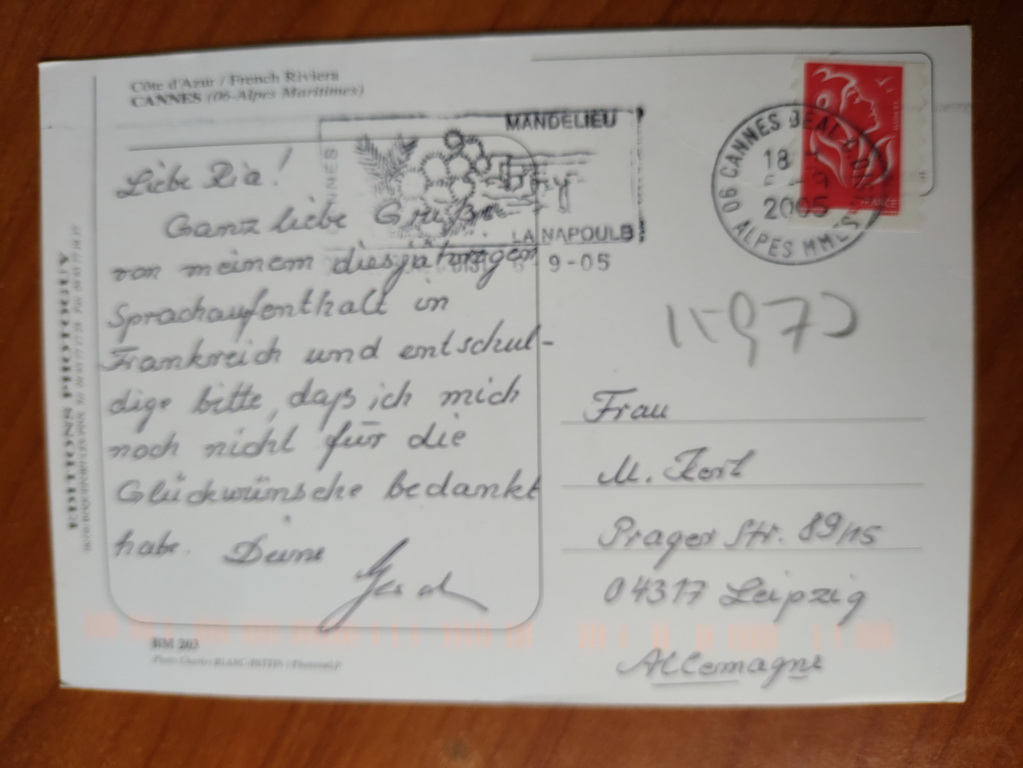 Côte d'Azur / French Riviera
CANNES (06-Alpes Maritimes)
MANDELIEU
LA NAPOULE
6-9-05
06 CANNES
18
2005
ALPES MMES
FRANCE
Liebe Ria!
Ganz liebe Grüße
von meinem diesjährigen
Sprachaufenthalt in
Frankreich und entschul-
dige bitte, daß ich mich
noch nicht für die
Glückwünsche bedankt
habe. Deine
Frau
M.
Prager Str. 89/15
04317 Leipzig
Allemagne
BM 203
EDITIONS PHOTOGUY